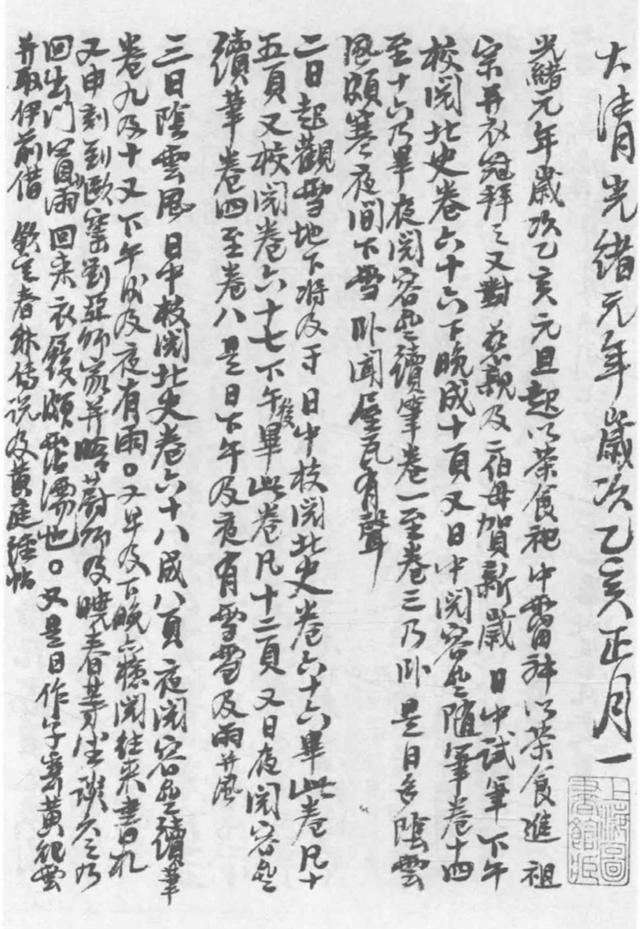 大清光緒元年歲次乙亥正月一
光緒元年歲次乙亥元旦起以茶食祀中霤神以茶食進 祖
宗并衣冠拜之又對 慈親及二伯母賀新歲 日中試筆下午
校閱北史卷六十六下晚成十頁又日中閱容齋隨筆卷十四
至十六乃畢夜閱容齋續筆卷一至卷三乃卧是日多陰雲
風頗寒夜間下雪卧聞屋瓦有聲
二日起觀雪地下將及寸 日中校閱北史卷六十六畢此卷凡十
五頁又校閱卷六十七下午後畢此卷凡十二頁又日夜閱容齋
續筆卷四至卷八是日下午及夜有雪雪及雨并風
三日陰雲風 日中校閱北史卷六十八成八頁夜閱容齋續筆
卷九及十又下午及夜有雨。又早及下晚閱往來書札
又申刻到歐窰劉亞師家并晤蔚師及曉春等坐談久之乃
回出門冒雨回來衣履頗霑濡也。又是日作字寄黃
并取伊前借 欽定春秋傳說及黃庭經帖
上海圖書館藏